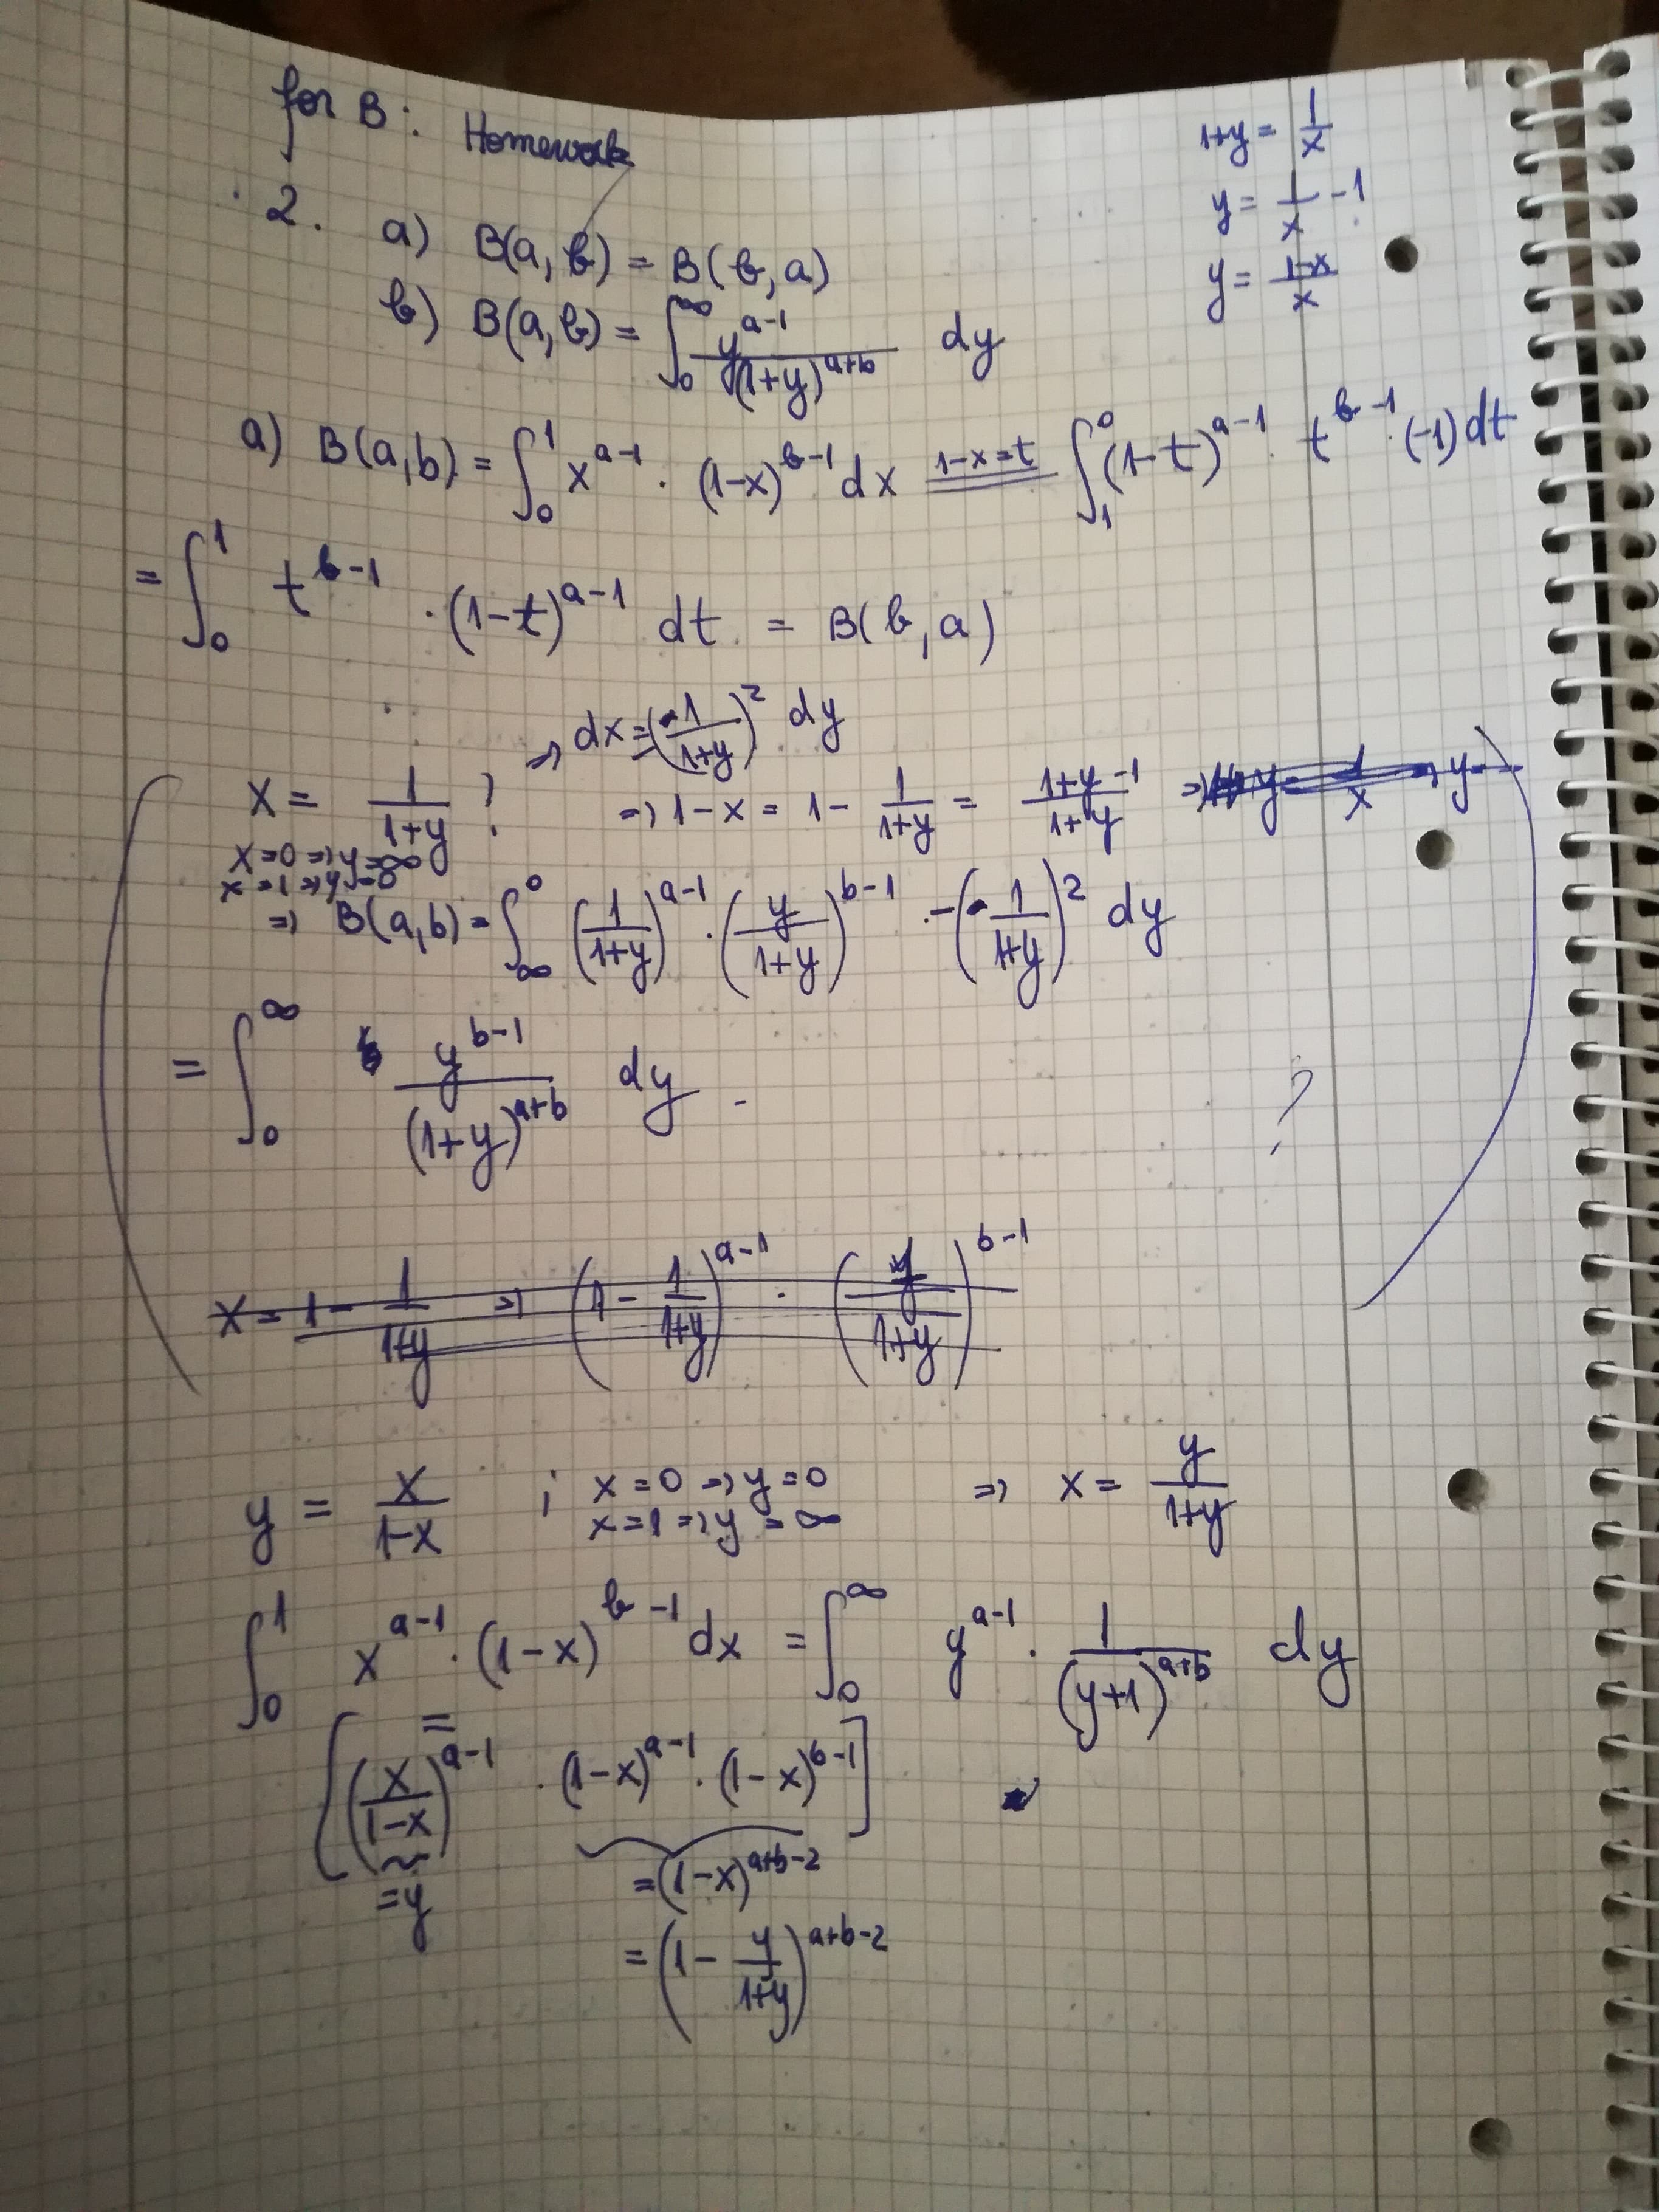 for B: Homework
1+y = 1/x
y = 1/x - 1
y = (1-x)/x
2. a) B(a, b) = B(b, a)
b) B(a, b) = ∫₀^∞ y^(a-1)/(1+y)^(a+b) dy
a) B(a,b) = ∫₀¹ x^(a-1) · (1-x)^(b-1) dx =(1-x=t)= ∫₁⁰ (1-t)^(a-1) · t^(b-1) · (-1) dt
= ∫₀¹ t^(b-1) · (1-t)^(a-1) dt = B(b, a)
⇒ dx = -(1/(1+y))² dy
x = 1/(1+y) ? ⇒ 1-x = 1 - 1/(1+y) = (1+y-1)/(1+y)
x=0 ⇒ y=∞
x=1 ⇒ y=0
⇒ B(a,b) = ∫_∞^0 (1/(1+y))^(a-1) · (y/(1+y))^(b-1) · -(1/(1+y))² dy
= ∫₀^∞ y^(b-1)/(1+y)^(a+b) dy - ?
x = 1 - 1/(1+y) ⇒ (1 - 1/(1+y))^(a-1) · (y/(1+y))^(b-1)
y = x/(1-x) ; x=0 ⇒ y=0 ⇒ x = y/(1+y)
x=1 ⇒ y=∞
∫₀¹ x^(a-1) · (1-x)^(b-1) dx = ∫₀^∞ y^(a-1) · 1/(y+1)^(a+b) dy
=
[(x/(1-x))^(a-1) · (1-x)^(a-1) · (1-x)^(b-1)]
=y =(1-x)^(a+b-2)
=(1 - y/(1+y))^(a+b-2)